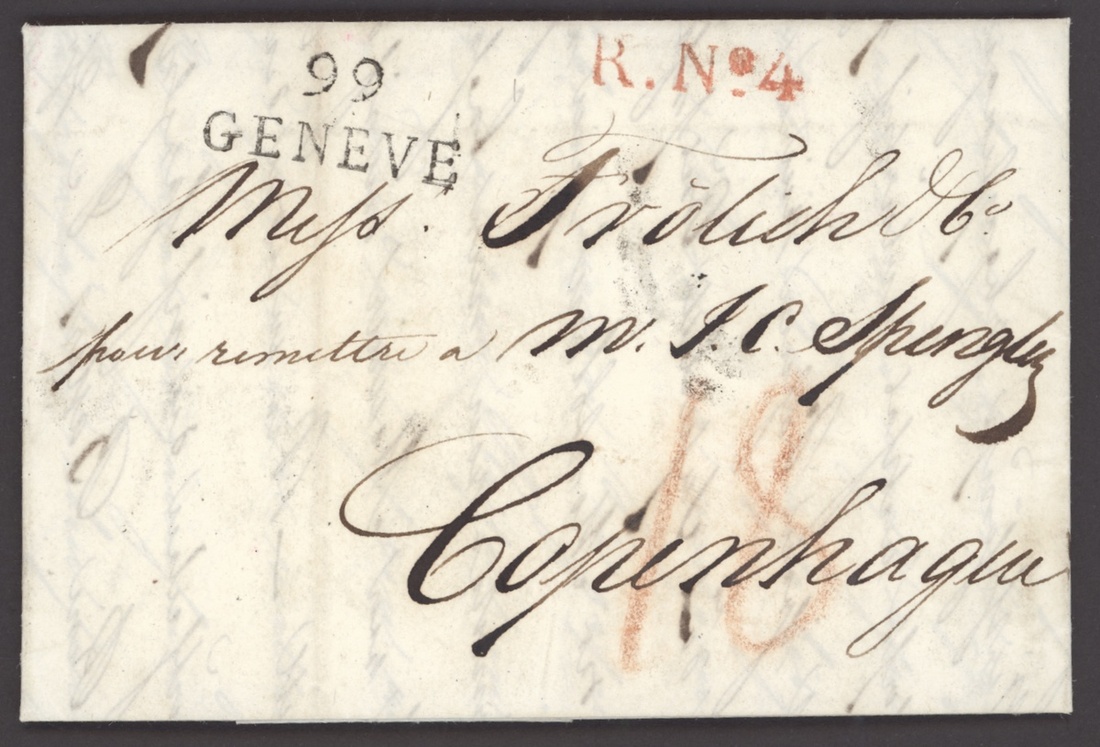 99
GENEVE
R. Nº. 4
Mess. Frölich & Cº.
pour remettre a M. J. C. Spengler
18
Copenhague